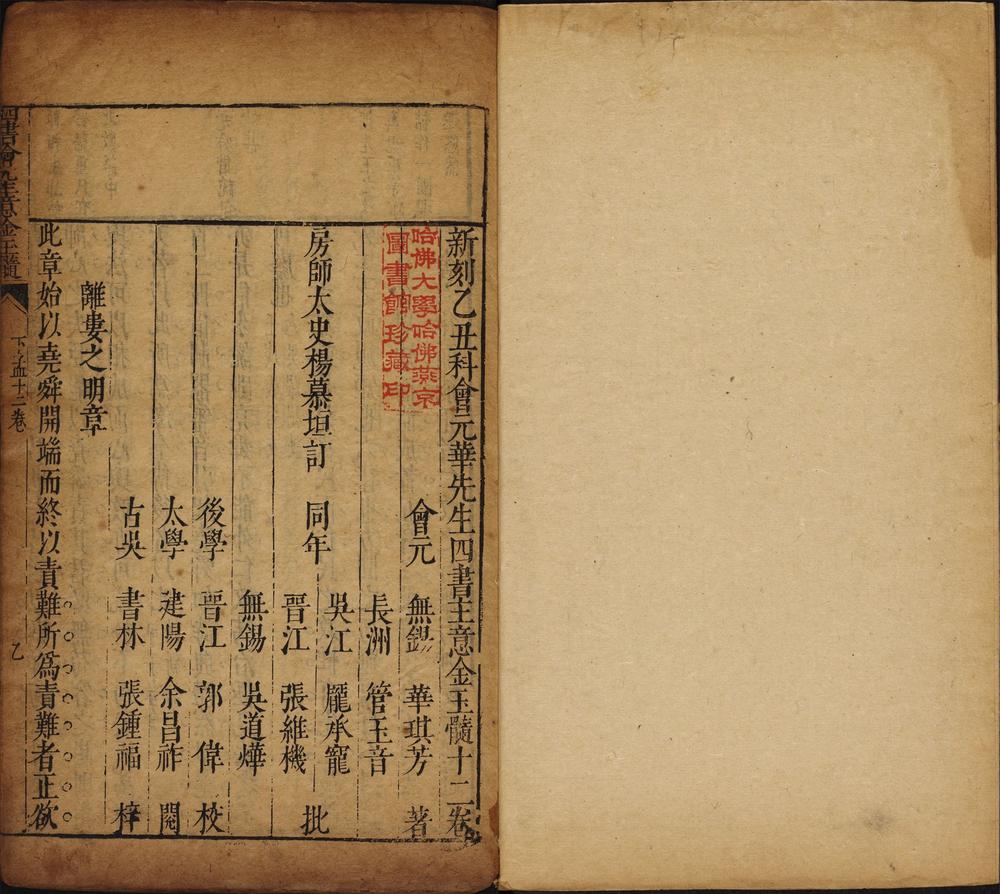 新刻乙丑科會元華先生四書主意金玉髓十二卷
會元 無錫 華琪芳 著
長洲 管玉音
房師太史楊慕垣訂 同年 吳江 龎承寵 批
晉江 張維機
無錫 吳道燁
後學 晉江 郭偉 校
太學 建陽 余昌祚 閱
古吳 書林 張鍾福 梓
離婁之明章
此章始以堯舜開端而終以責難所爲責難者正欲
四書會元主意金玉髓
下孟十二卷
乙
哈佛大學哈佛燕京
圖書館珍藏印